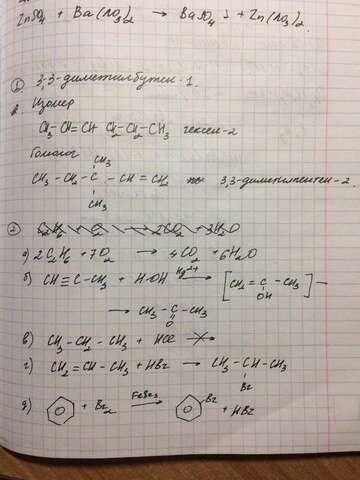 ZnSO4 + Ba(NO3)2 → BaSO4↓ + Zn(NO3)2.
① 3,3-диметилбутен-1.
Изомер
CH3-CH=CH-CH2-CH2-CH3 гексен-2
Гомолог
CH3
CH3-CH2-C-CH=CH2 3,3-диметилпентен-2.
CH3
②
а) 2C2H6 + 7O2 → 4CO2 + 6H2O
б) CH≡C-CH3 + H-OH Hg2+→ [CH2=C-CH3]-
OH
→ CH3-C-CH3
O
в) CH3-CH2-CH3 + HCl
г) CH2=CH-CH3 + HBr → CH3-CH-CH3
Br
д) + Br2 FeBr3→ Br + HBr